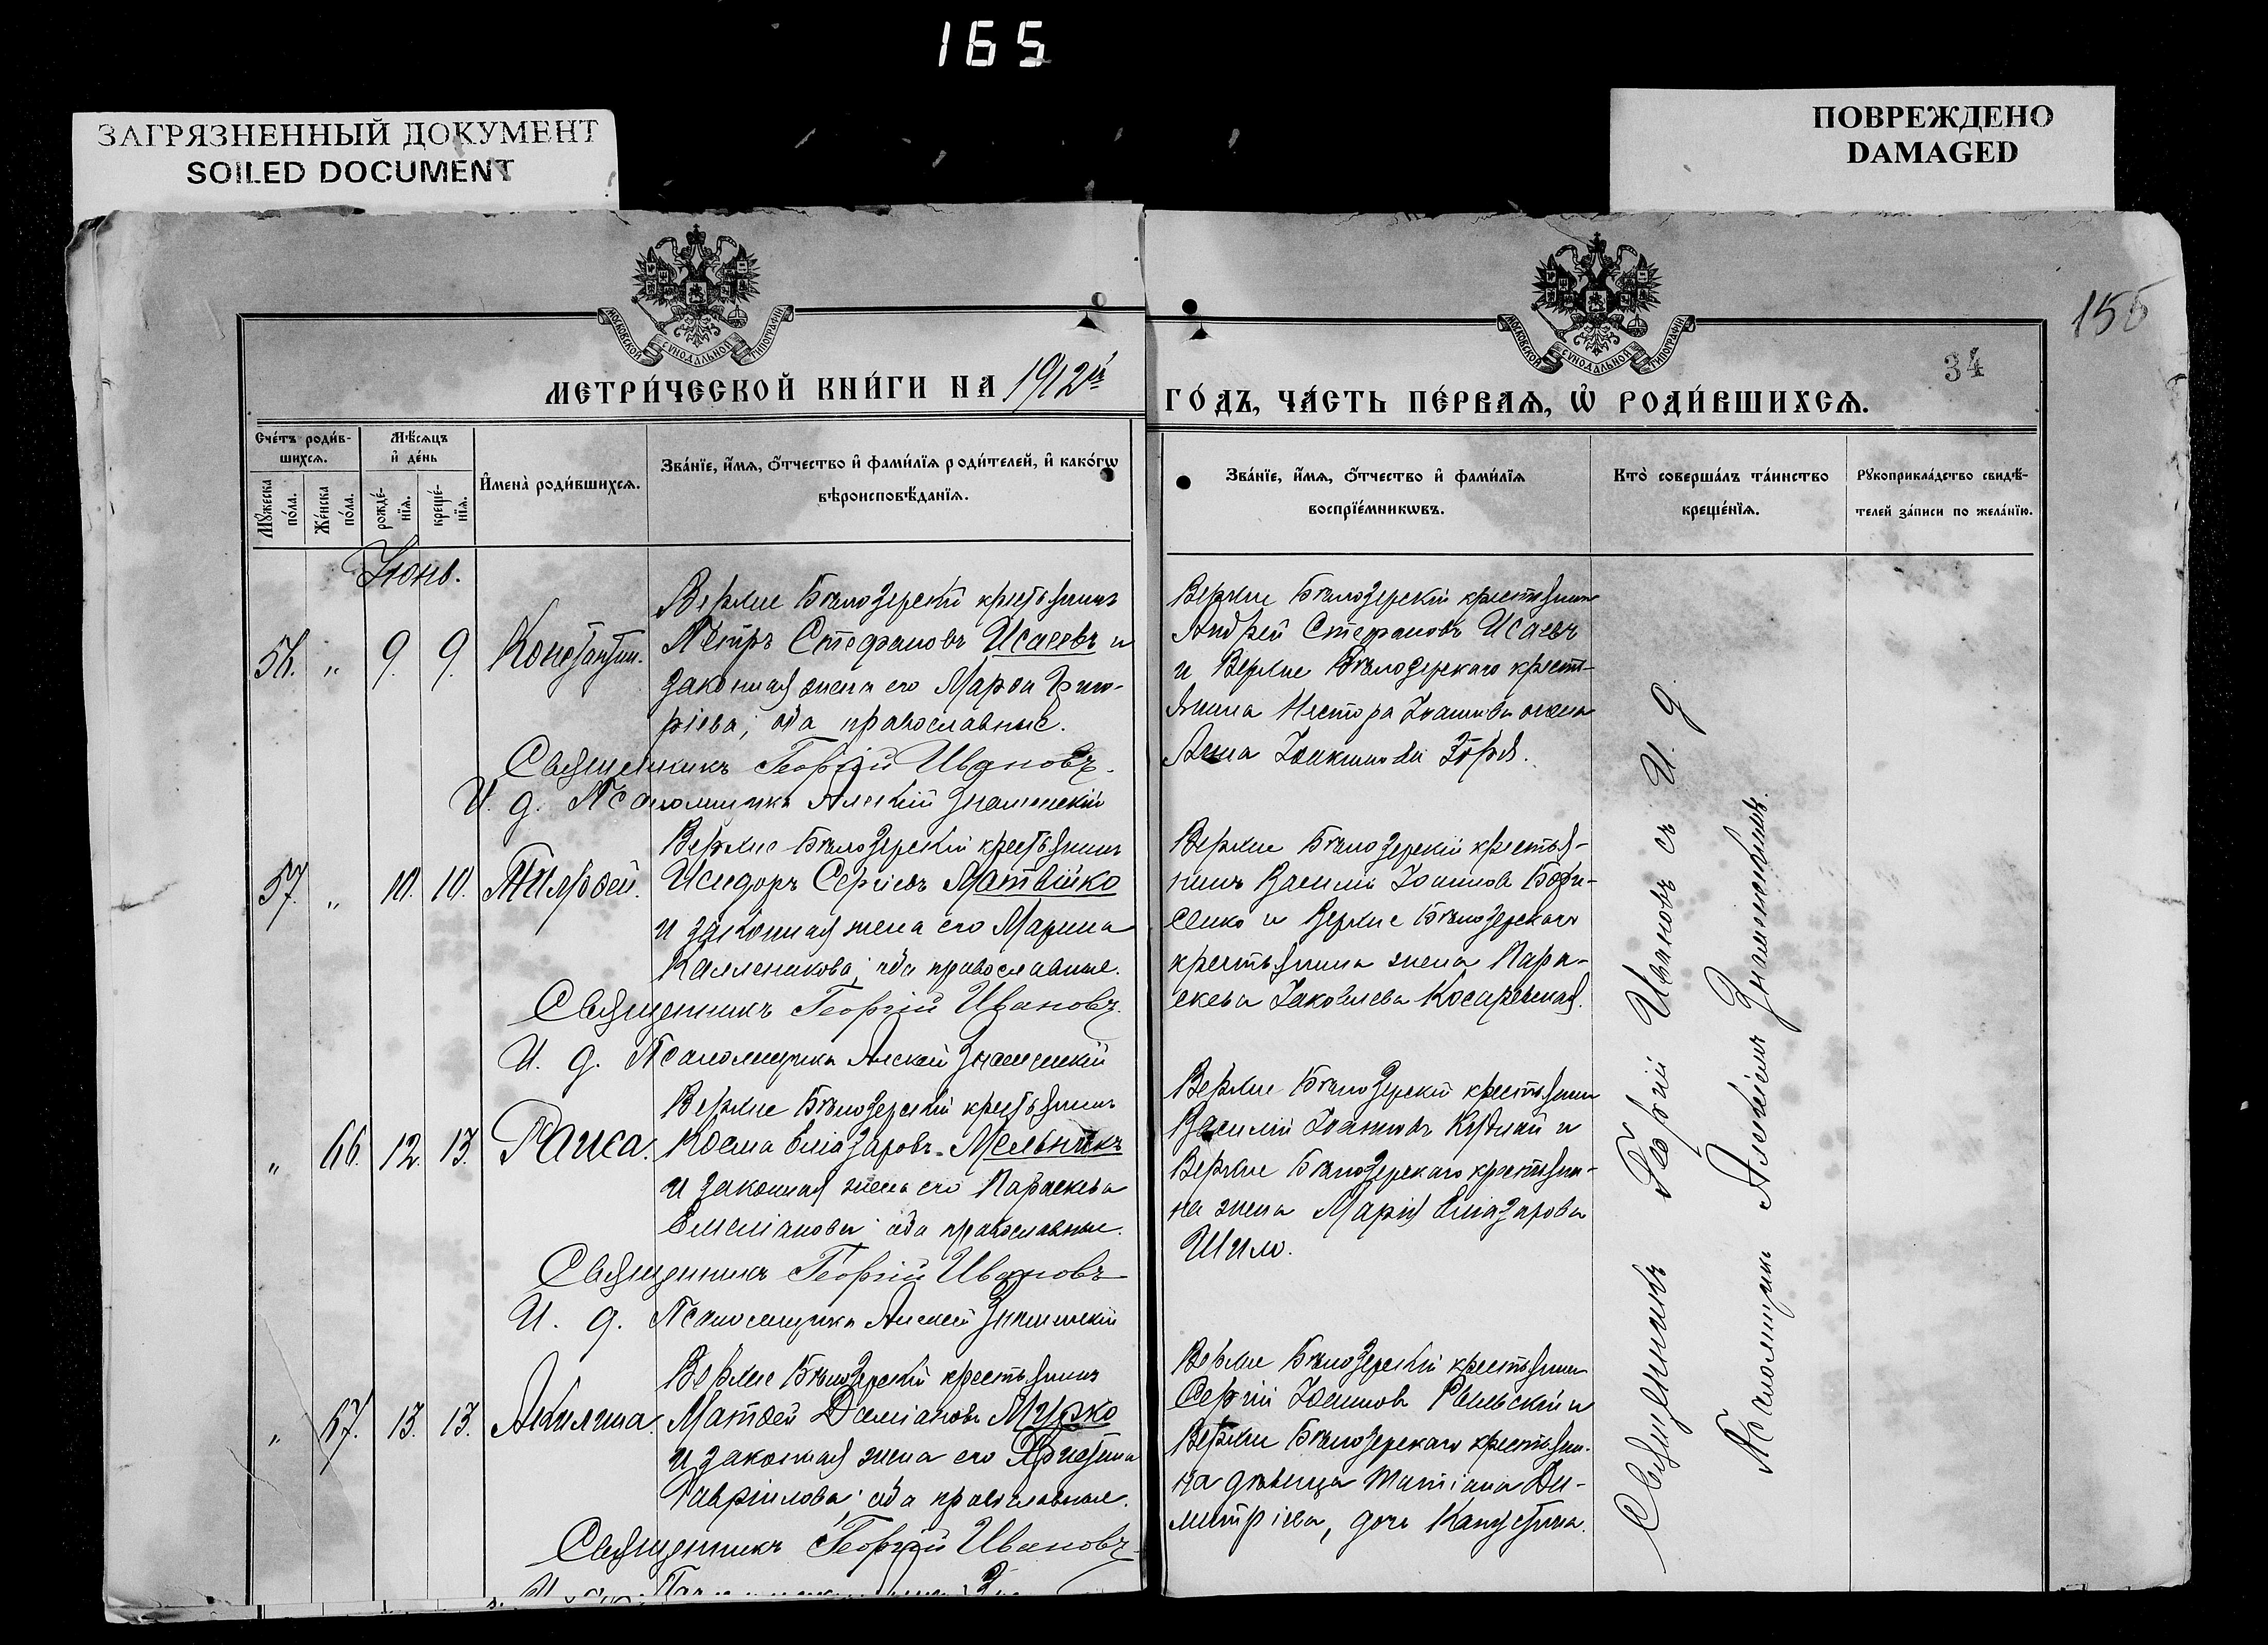 165
ЗАГРЯЗНЕННЫЙ ДОКУМЕНТ
SOILED DOCUMENT
ПОВРЕЖДЕНО
DAMAGED
МОСКОВСКОЙ СѴНОДАЛЬНОЙ ТИПОГРАФІИ
МОСКОВСКОЙ СѴНОДАЛЬНОЙ ТИПОГРАФІИ
155
34
МЕТРИ́ЧЕСКОЙ КНИ́ГИ НА 1912й
ГО́ДЪ, ЧА́СТЬ ПЕ́РВАѦ, Ѡ҆ РОДИ́ВШИХСѦ.
Сче́тъ роди́в-
шихсѧ.
Мꙋ́жеска
по́ла.
Же́нска
по́ла.
Мѣ́сѧцъ
и҆ де́нь
рожде́-
нїѧ.
креще́-
нїѧ.
И҆мена̀ роди́вшихсѧ.
Зва́нїе, и҆́мѧ, ѻ҆́тчество и҆ фами́лїѧ роди́телей, и҆ како́гѡ
вѣроисповѣ́данїѧ.
Зва́нїе, и҆́мѧ, ѻ҆́тчество и҆ фами́лїѧ
воспрїе́мникѡвъ.
Кто̀ соверша́лъ та́инство
креще́нїѧ.
Рꙋкоприкла́дство свидѣ́-
телей за́писи по жела́нїю.
Іюнь.
56. " 9. 9. Константин.
Верхне Бѣлозерскій крестьянинъ
Петръ Стефановъ Исаевъ и
законная жена его Марѳа Григо-
ріева; оба православные.
Священникъ Георгій Ивановъ.
И. д. Псаломщика Алексій Знаменскій
Верхне Бѣлозерскій крестьянин
Андрей Стефановъ Исаевъ
и Верхне Бѣлозерскаго крестъ-
янина Нестора Іоаннова жена
Анна Іоакимова Зоря.
57. " 10. 10. Тимоѳей.
Верхне Бѣлозерскій крестьянинъ
Исидоръ Сергіевъ Матвійко
и законная жена его Марина
Каллиникова; оба православные.
Священникъ Георгій Ивановъ.
И. д. Псаломщика Алексій Знаменскій
Верхне Бѣлозерскій крестья-
нинъ Василій Іоаннов Бори-
сенко и Верхне Бѣлозерскаго
крестьянина жена Пара-
скева Іаковлева Косаревская.
" 66. 12. 13. Раиса.
Верхне Бѣлозерскій крестьянинъ
Косма Еліазаровъ Мельникъ
и законная жена его Параскева
Емеліанова; оба православные.
Священникъ Георгій Ивановъ
И. д. Псаломщика Алексій Знаменскій
Верхне Бѣлозерскій крестьянин
Василій Іоанновъ и
Верхне Бѣлозерскаго крестьяни-
на жена Марія Еліазарова
Шило.
" 67. 13. 13. Акилина.
Верхне Бѣлозерскій крестьянинъ
Матѳей Даміановъ Мурко
и законная жена его Христина
Гавріилова; оба православные.
Священникъ Георгій Ивановъ
Верхне Бѣлозерскій крестьянин
Сергій Іоаннов Раильскій и
Верхне Бѣлозерскаго крестьяни-
на дѣвица Татіана Ди-
митріева, дочь Капустина.
Священникъ Георгій Ивановъ съ И. д.
Псаломщика Алексіемъ Знаменскимъ.